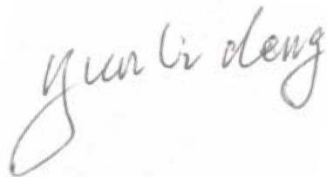 yun li deng